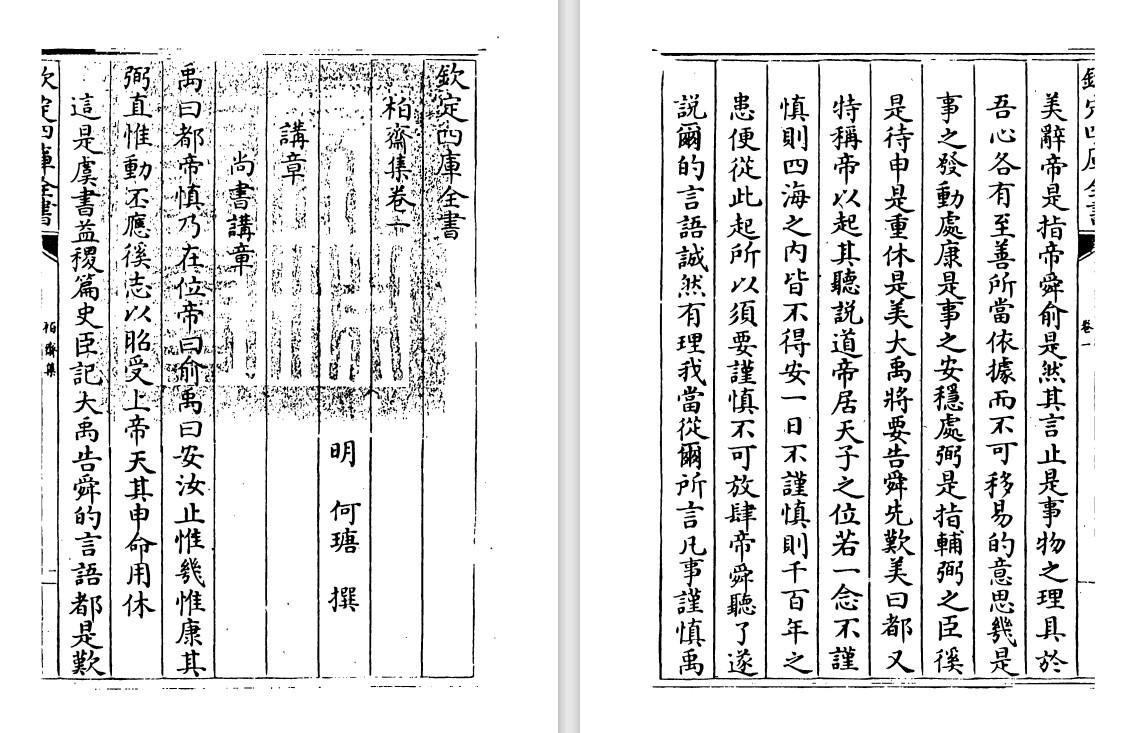 欽定四庫全書
柏齋集卷一
明　何瑭　撰
講章
尚書講章
禹曰都帝慎乃在位帝曰俞禹曰安汝止惟幾惟康其
弼直惟動丕應徯志以昭受上帝天其申命用休
這是虞書益稷篇史臣記大禹告舜的言語都是歎
欽定四庫全書　柏齋集
欽定四庫全書　卷一
美辭帝是指帝舜俞是然其言止是事物之理具於
吾心各有至善所當依據而不可移易的意思幾是
事之發動處康是事之安穩處弼是指輔弼之臣徯
是待申是重休是美大禹將要告舜先歎美曰都又
特稱帝以起其聽説道帝居天子之位若一念不謹
慎則四海之内皆不得安一日不謹慎則千百年之
患便從此起所以須要謹慎不可放肆帝舜聽了遂
説爾的言語誠然有理我當從爾所言凡事謹慎禹